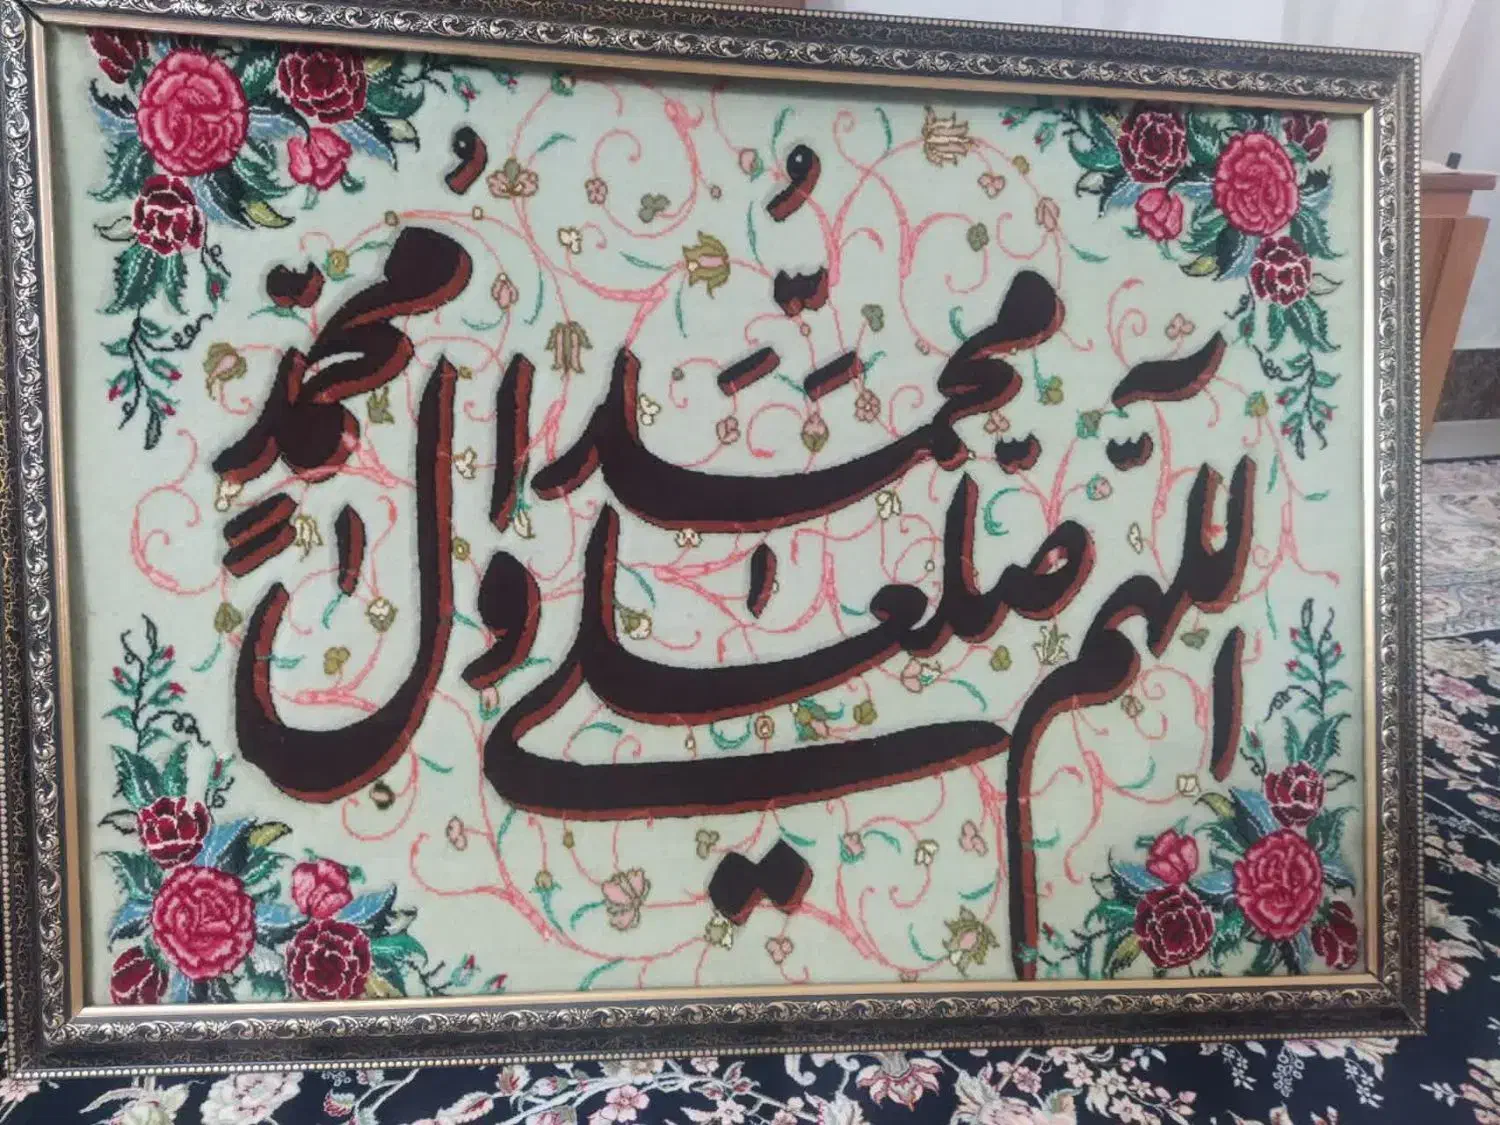 اللّهم صلّ علی محمّد وال محمّدٍ